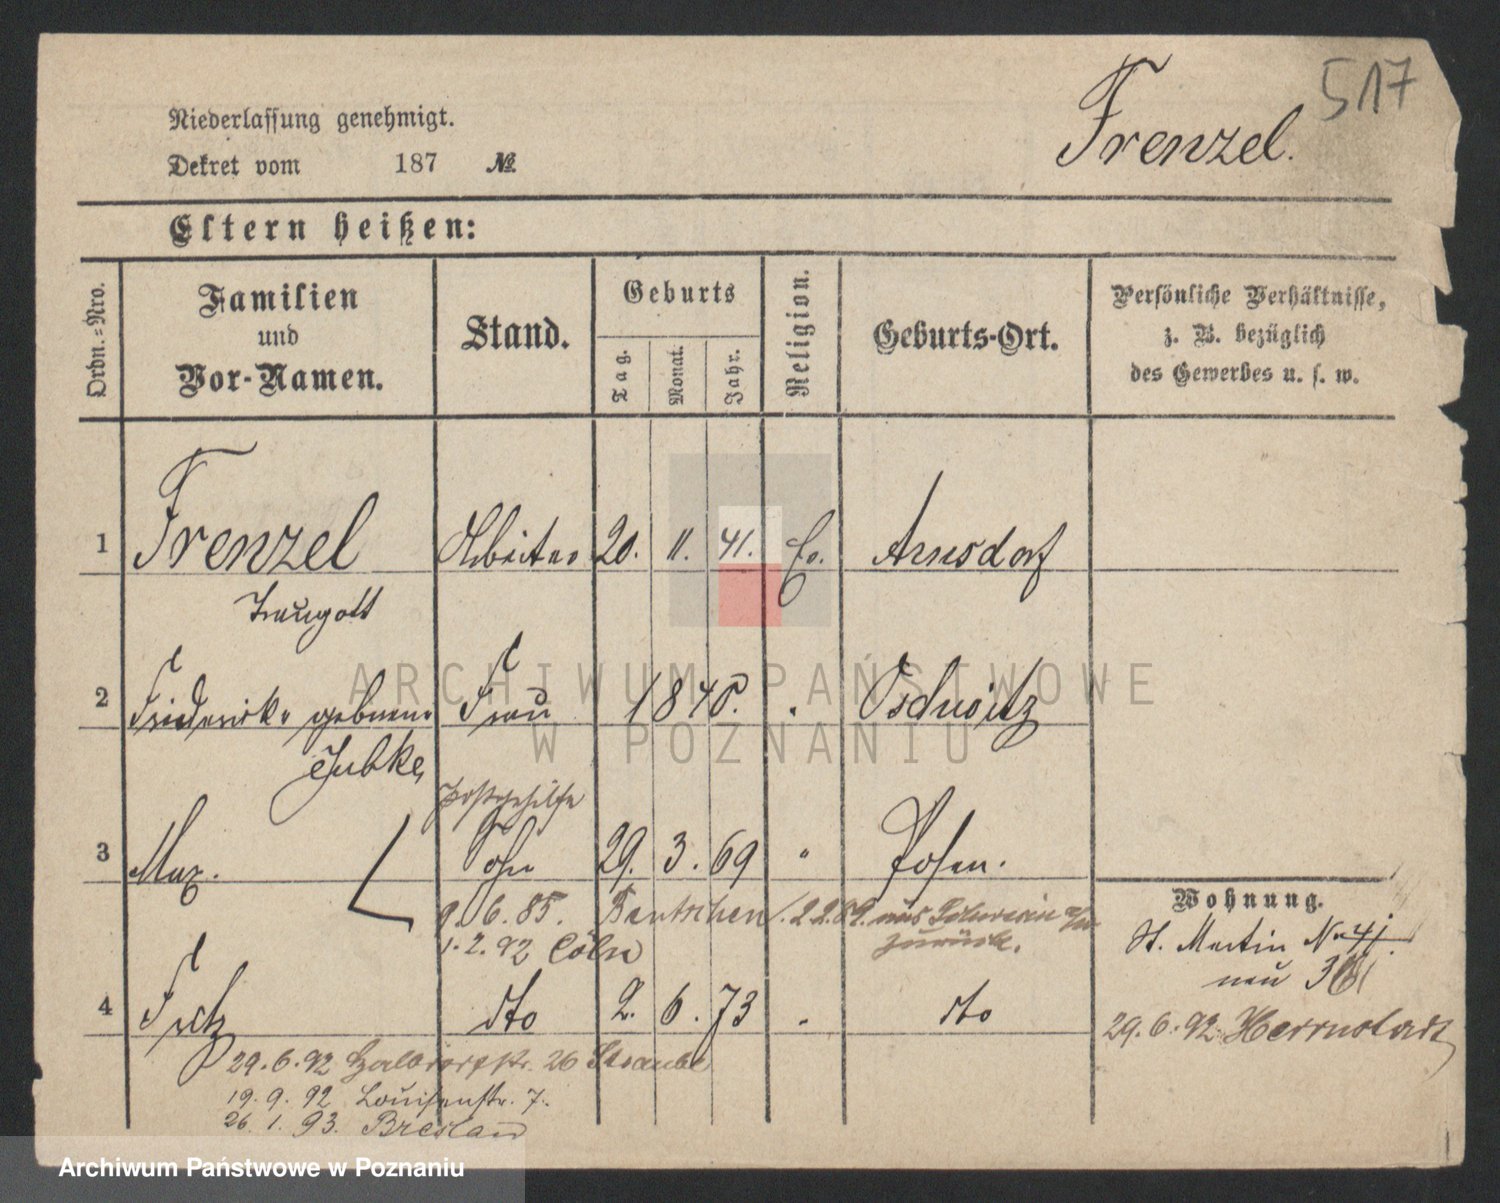 517
Frenzel.
Niederlassung genehmigt.
Dekret vom 187 №
Eltern heißen:
Ordn.-Nro.
Familien
und
Vor-Namen.
Stand.
Geburts
Tag.
Monat.
Jahr.
Religion.
Geburts-Ort.
Persönliche Verhältnisse,
z. B. bezüglich
des Gewerbes u. s. w.
1 Frenzel Arbeiter 20. 11. 41. Ev. Arnsdorf
Traugott
2 Friderike geborene Frau 1840. Oschwitz
Jubke
Postgehilfe
3 Max. Sohn 29. 3. 69 " Posen.
9. 6. 85. Bentschen 1.2.89. aus Schwerin a/W
zurück.
1. 2. 92 Cöln
Wohnung.
St. Martin No 41.
neu 36
4 Fritz dto 2. 6. 73 dto
29. 6. 92 Herrnstadt
29. 6. 92 Halbdorfstr. 26 Straube
19. 9. 92 Louisenstr. 7.
26. 1. 93. Breslau
ARCHIWUM PAŃSTWOWE
W POZNANIU
Archiwum Państwowe w Poznaniu